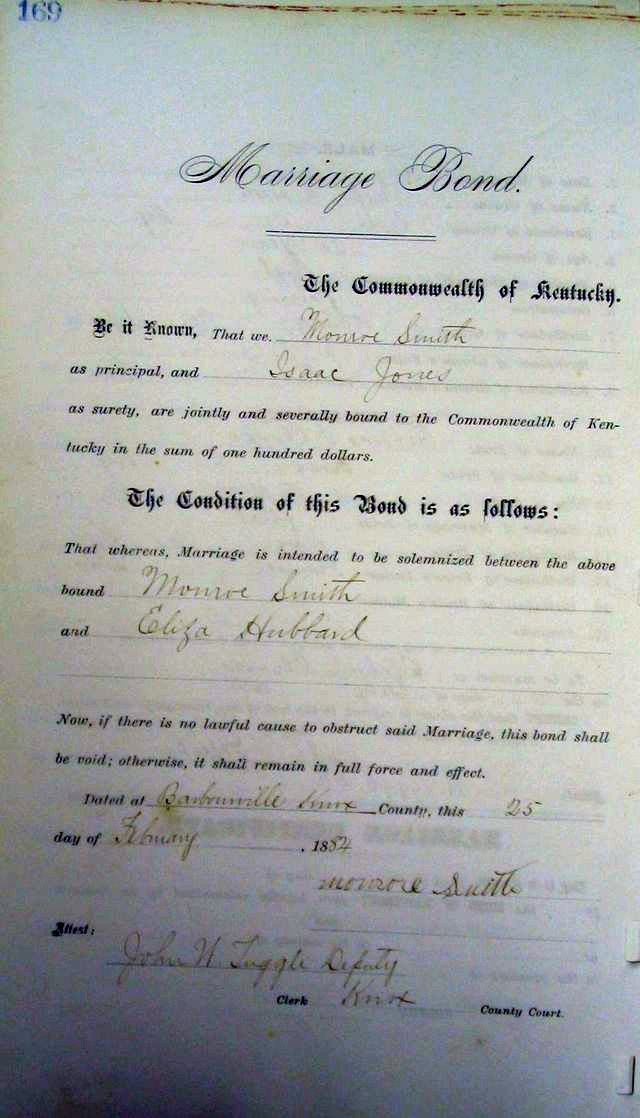 169
Marriage Bond.
The Commonwealth of Kentucky.
Be it Known, That we, Monroe Smith
as principal, and Isaac Jones
as surety, are jointly and severally bound to the Commonwealth of Ken-
tucky in the sum of one hundred dollars.
The Condition of this Bond is as follows:
That whereas, Marriage is intended to be solemnized between the above
bound Monroe Smith
and Eliza Hubbard
Now, if there is no lawful cause to obstruct said Marriage, this bond shall
be void; otherwise, it shall remain in full force and effect.
Dated at Barbourville Knox County, this 25
day of February, 1884
Monroe Smith
Attest:
John W. Tuggle Deputy
Clerk Knox County Court.